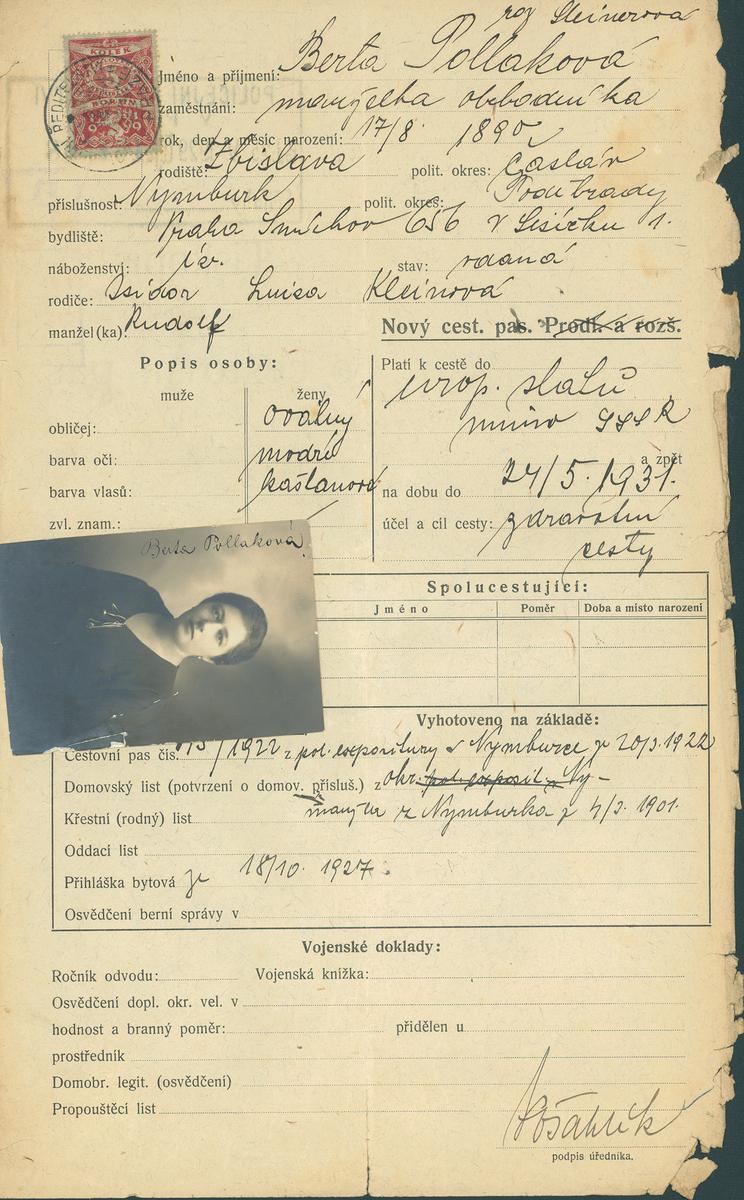 roz. Steinerová
KOLEK
KORUN
Jméno a příjmení: Berta Pollaková
zaměstnání: manželka obchodníka
rok, den a měsíc narození: 17/8. 1890
rodiště: Zbislava polit. okres: Čáslav
příslušnost: Nymburk polit. okres: Poděbrady
bydliště: Praha Smíchov 656 V Lesíčku 1.
náboženství: izr. stav: vdaná
rodiče: Isidor Luisa Kleinová
manžel(ka): Rudolf
Nový cest. pas. Prodl. a rozš.
Popis osoby:
Platí k cestě do
muže ženy
evrop. států
obličej: oválný
mimo SSSR
barva očí: modré
a zpět
barva vlasů: kaštanové
na dobu do 24/5. 1931.
zvl. znam.:
účel a cíl cesty: zdravotní
cesty
Berta Pollaková
Spolucestující:
Jméno Poměr Doba a místo narození
Vyhotoveno na základě:
Cestovní pas čís. /1922 z pol. expositury v Nymburce ze 20/3. 1922
Domovský list (potvrzení o domov. přísluš.) z okr. pol. exposit. v Ny-
Křestní (rodný) list z Nymburka z 4/3. 1901.
Oddací list
Přihláška bytová ze 18/10. 1927.
Osvědčení berní správy v
Vojenské doklady:
Ročník odvodu: Vojenská knížka:
Osvědčení dopl. okr. vel. v
hodnost a branný poměr: přidělen u
prostředník
Domobr. legit. (osvědčení)
Propouštěcí list
podpis úředníka.